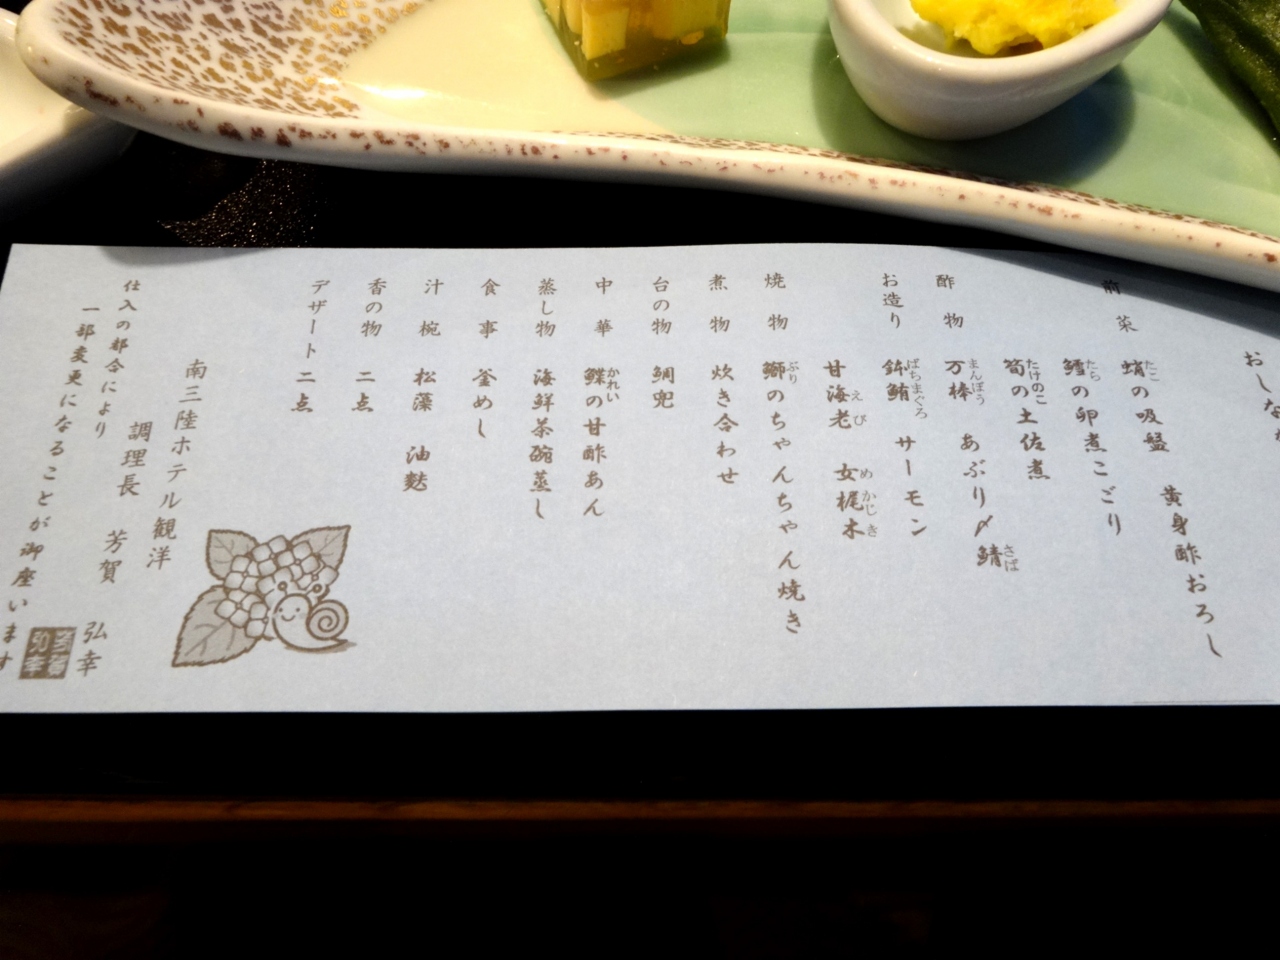 おしな
前菜 蛸の吸盤 黄身酢おろし
たこ
鱈の卵煮こごり
たら
筍の土佐煮
たけのこ
酢物 万棒 あぶり〆鯖
まんぼう さば
お造り 鉢鮪 サーモン
ばちまぐろ
甘海老 女梶木
えび めかじき
焼物 鰤のちゃんちゃん焼き
ぶり
煮物 炊き合わせ
台の物 鯛兜
中華 鰈の甘酢あん
かれい
蒸し物 海鮮茶碗蒸し
食事 釜めし
汁椀 松藻 油麩
香の物 二点
デザート二点
南三陸ホテル観洋
調理長 芳賀 弘幸
仕入の都合により
一部変更になることが御座います